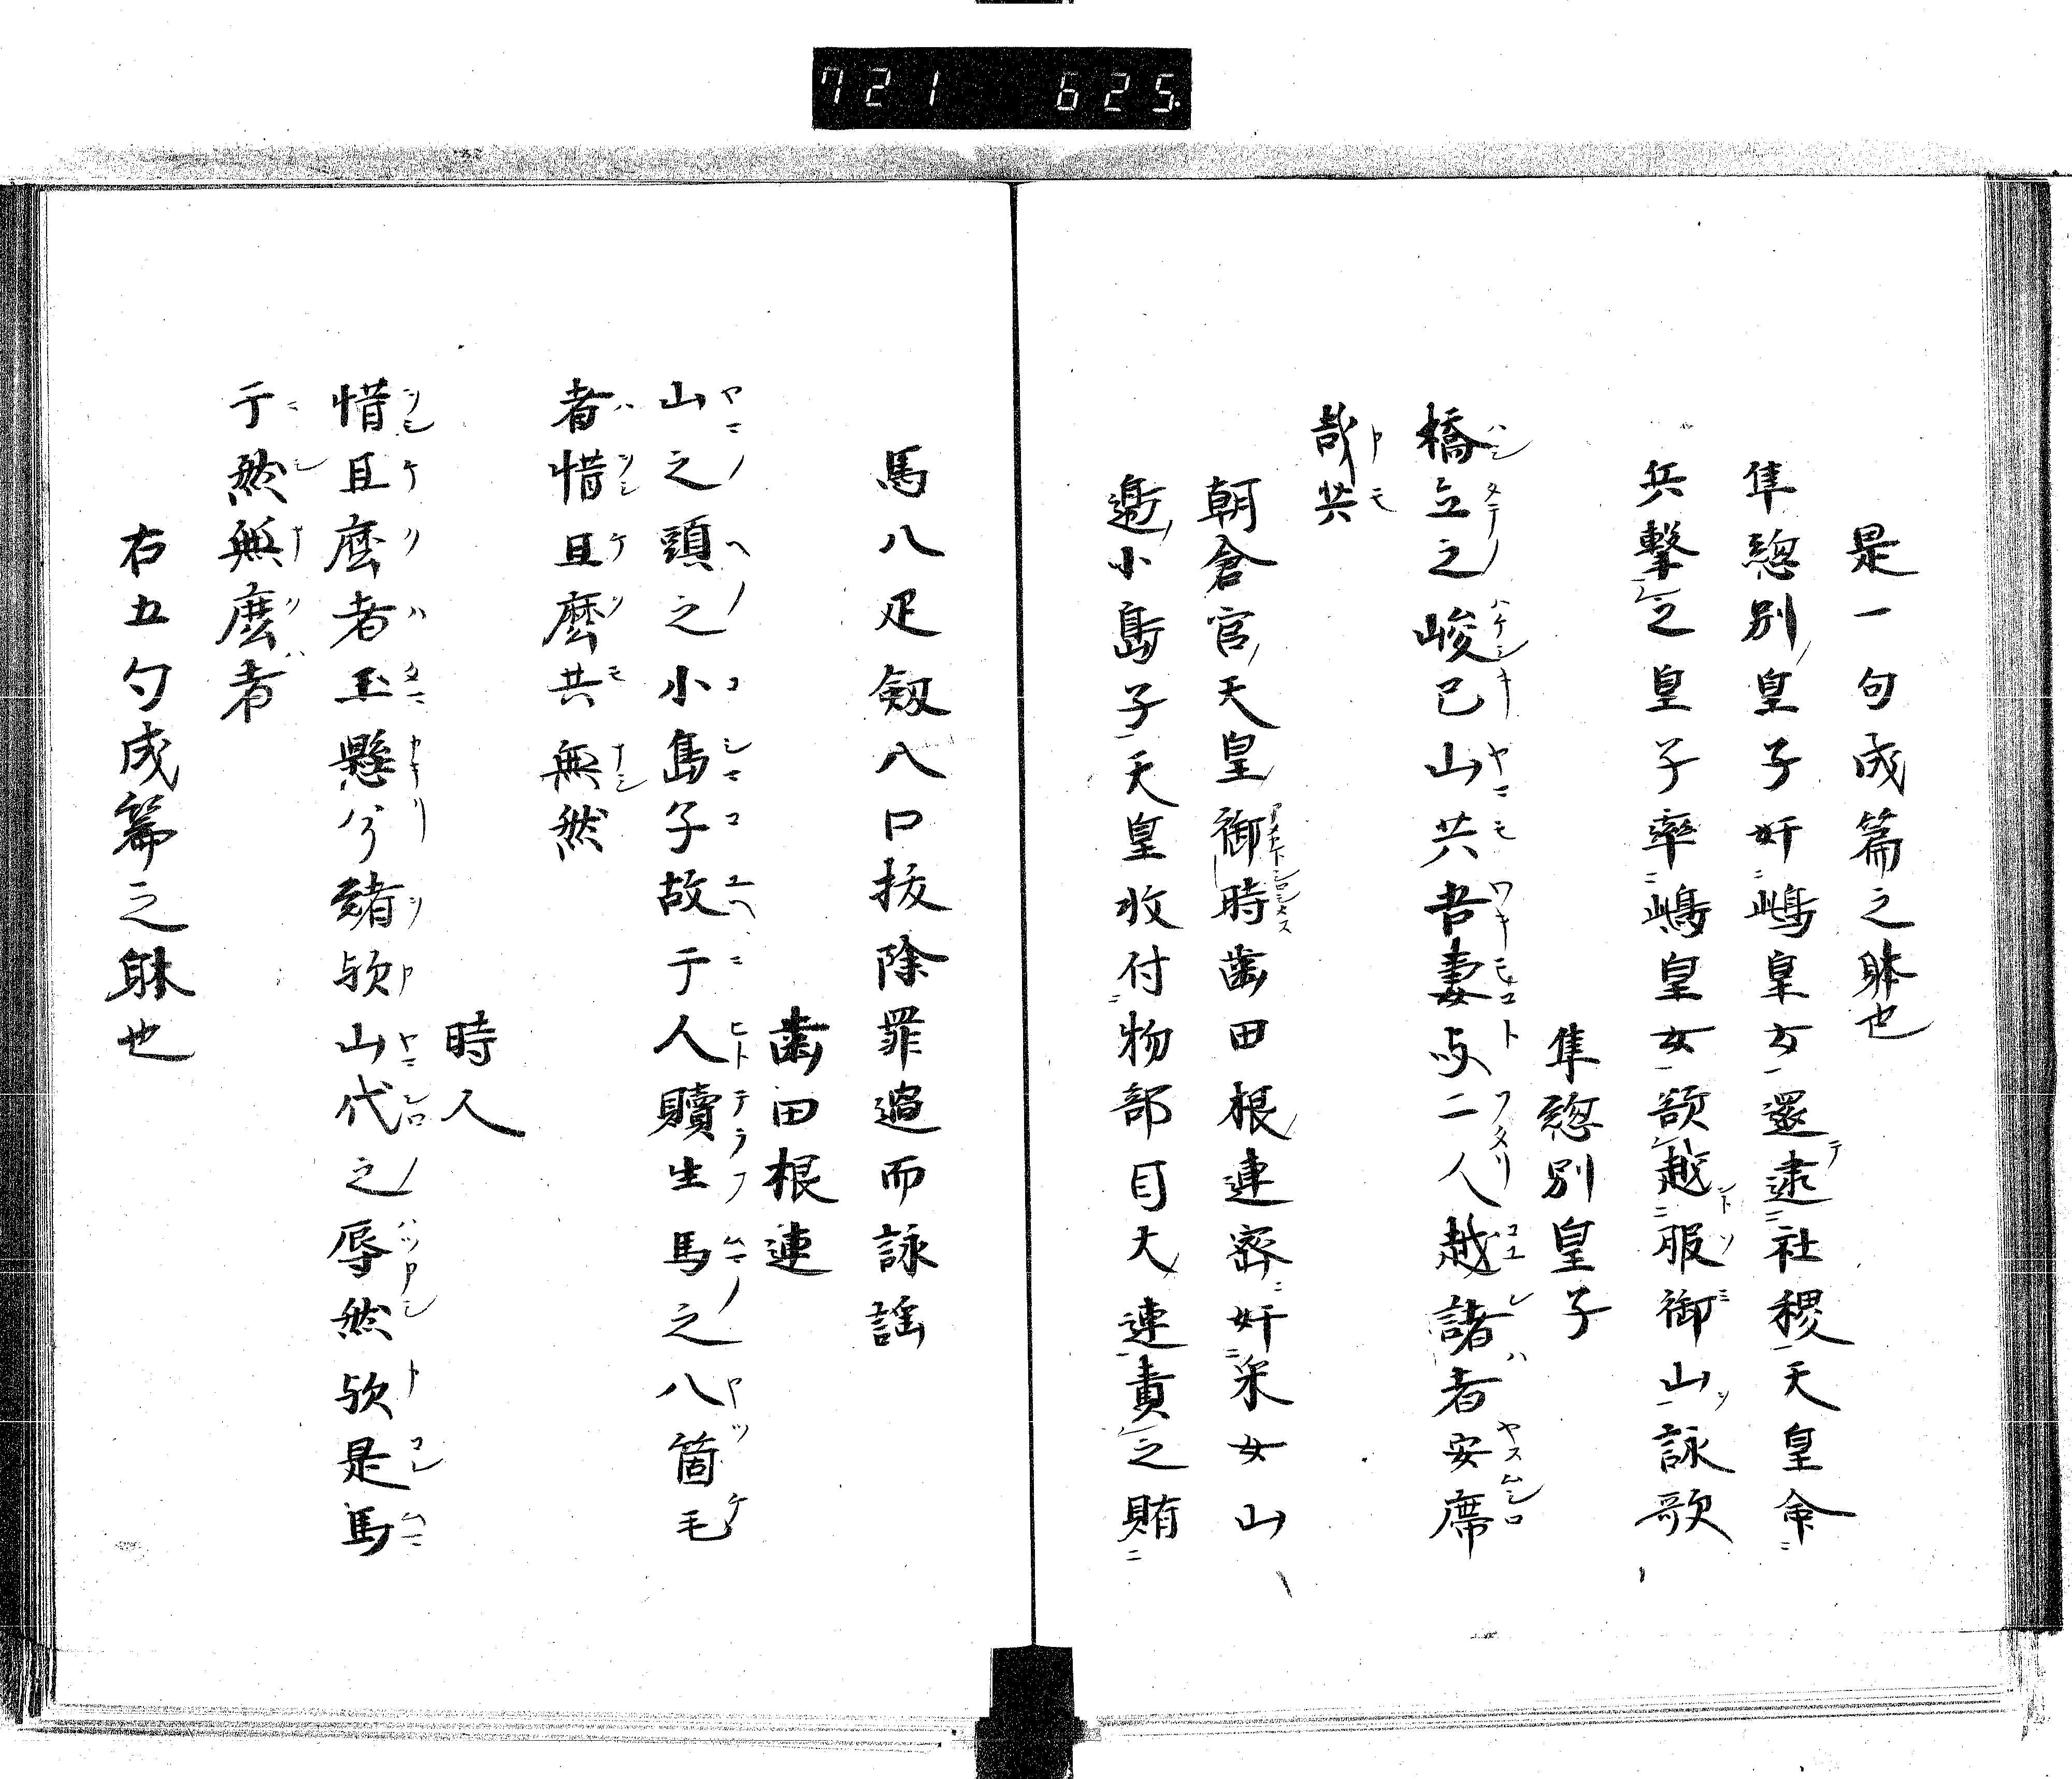 721 625
是一句成篇之躰也
隼惣別皇子奸嶋皇女還逮社稷天皇命
兵撃之皇子率嶋皇女欲越服御山詠歌
隼惣別皇子
橋立之峻已山共吾妻与二人越諸者安席
哉共
朝倉官天皇御時歯田根連密奸采女山
邊小島子天皇收付物部目大連責之賄
馬八疋釼八口抜除罪過而詠謡
歯田根連
山之頭之小島子故于人贖生馬之八箇毛
者惜且麽共無然
時人
惜且麽者玉懸兮緒欤山代之辱然欤是馬
于然無麽者
右五勺成篇之躰也